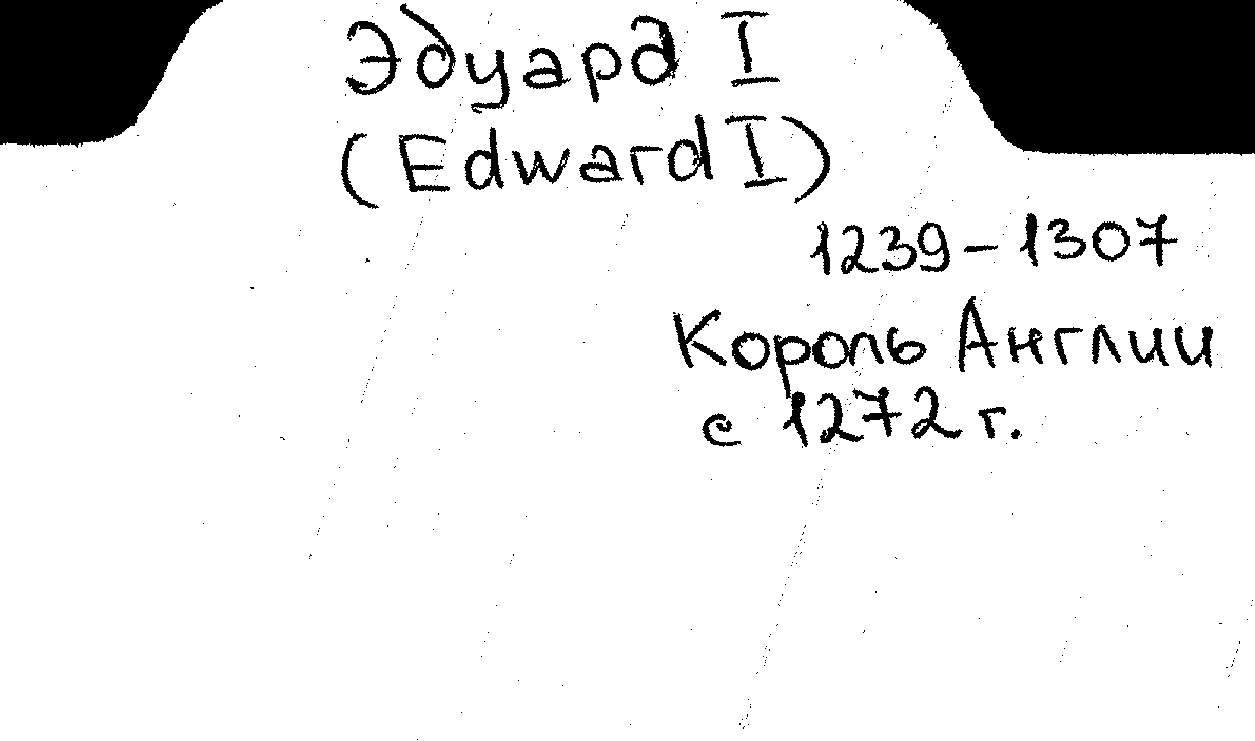 Эдуард I
(Edward I)
1239 – 1307
Король Англии
с 1272 г.